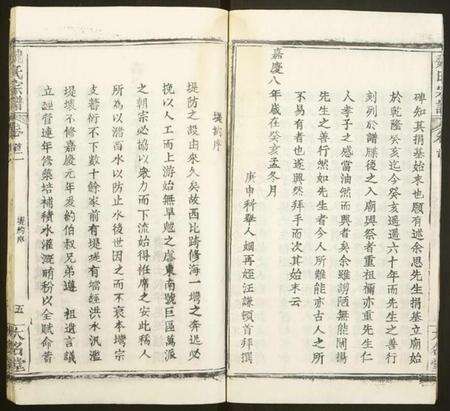 碑知其捐基始末也願有述余思先生捐基立廟始
於乾隆癸亥迄今癸亥週遞六十年而先生善行
刻列於譜牒後之入廟興祭者重祖禰亦重先生仁
人孝子之感當油然而興者矣余雖謭陋無能闡揚
先生之善行然如先生者今人所難能亦古人之所
不易有者也遂興然拜手而次其始末云
嘉慶八年歲在癸亥孟冬月
庚申科舉人姻再姪汪謙頓首拜撰
堤約序
堤防之設由來久矣故西北跨修海一塘之奔逃必
挽以人工而上游始無旱魃之虐東南號巨區萬派
之朝宗必協以眾力而下流始得袵席之安此稱人
所為以瀦西水以防止水後世因之而不衰本塘宗
支蕃衍不下數十餘家前有堤埂有壋經洪水汎濫
堤壞不修嘉慶元年爰約伯叔兄弟遵 祖遺言議
立經督連年修築培補積水灌溉畊粉以全賦命昔
氏宗譜
卷
堤約序
五
大名堂